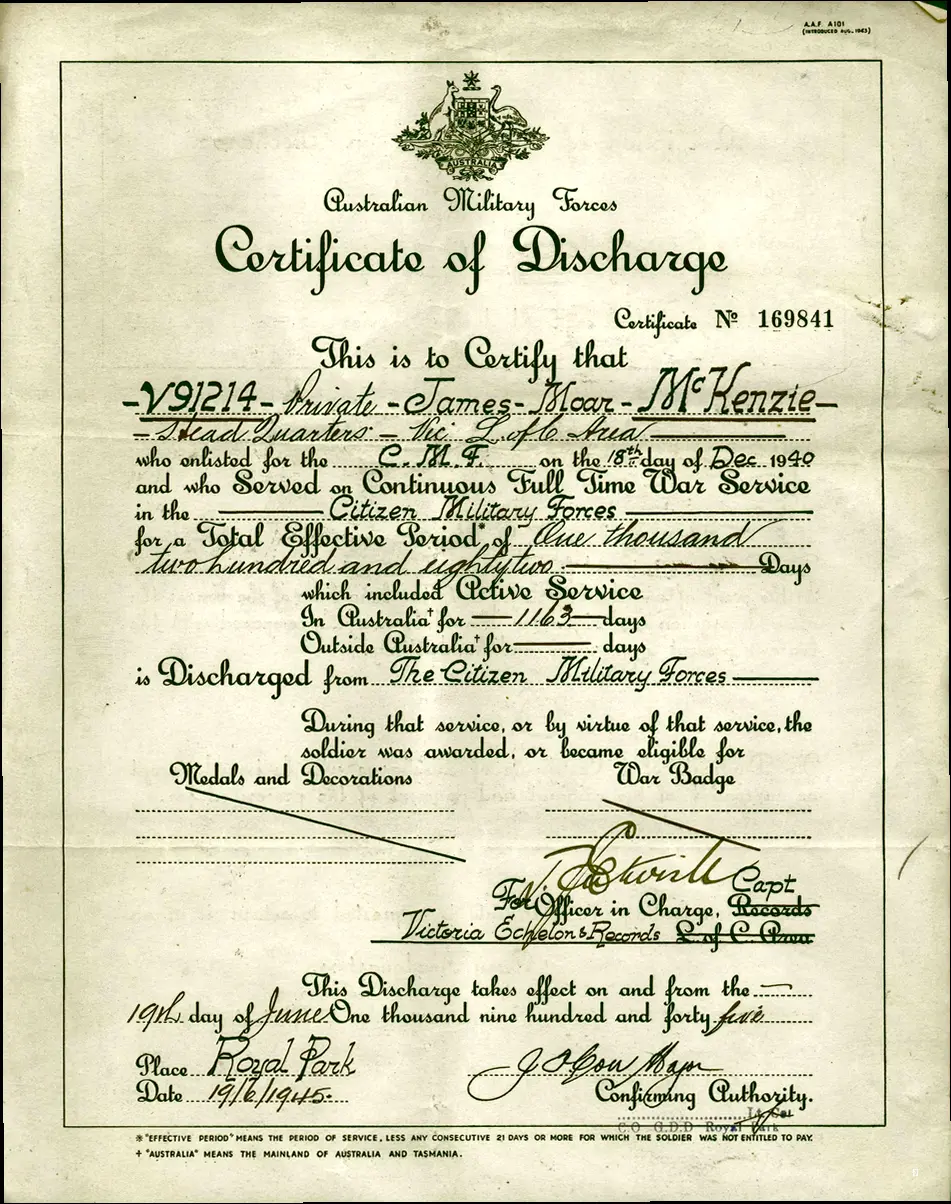 A.A.F. A101
(INTRODUCED AUG. 1943)
AUSTRALIA
Australian Military Forces
Certificate of Discharge
Certificate No 169841
This is to Certify that
-V91214- Private - James - Moar - McKenzie-
- Head Quarters - Vic L. of C Area
who enlisted for the C. M. F. on the 18th day of Dec 1940
and who Served on Continuous Full Time War Service
in the Citizen Military Forces
for a Total Effective Period* of One thousand
two hundred and eighty two Days
which included Active Service
In Australia† for 1163 days
Outside Australia† for days
is Discharged from The Citizen Military Forces
During that service, or by virtue of that service, the
soldier was awarded, or became eligible for
Medals and Decorations War Badge
Capt
For Officer in Charge, Records
Victoria Echelon & Records L of C. Area
This Discharge takes effect on and from the
19th day of June One thousand nine hundred and forty five
Place Royal Park Major
Date 19/6/1945. Confirming Authority.
Lt Col
C.O G.D.D Royal Park
* "EFFECTIVE PERIOD" MEANS THE PERIOD OF SERVICE, LESS ANY CONSECUTIVE 21 DAYS OR MORE FOR WHICH THE SOLDIER WAS NOT ENTITLED TO PAY.
† "AUSTRALIA" MEANS THE MAINLAND OF AUSTRALIA AND TASMANIA.